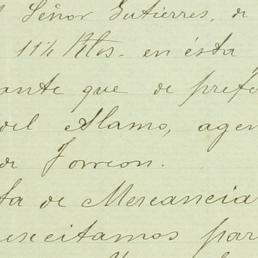 Señor Gutierres, de
11½ Rles. en ésta
ante que de prefe
del Alamo, agen
de Torreon.
ta de Mercancia
esitamos par